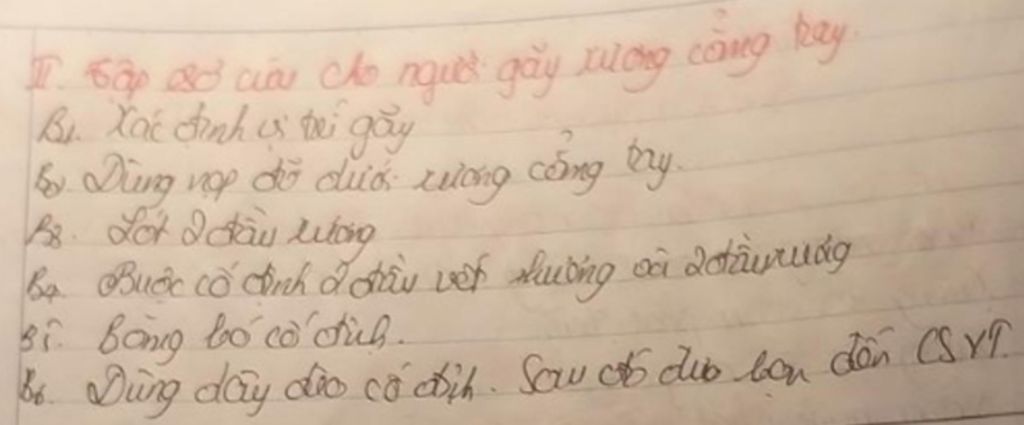 II. Tập sơ cứu cho người gãy xương cẳng tay.
B1. Xác định vị trí gãy
B2. Dùng nẹp đỡ dưới xương cẳng tay.
B3. Lót 2 đầu xương
B4. Buộc cố định 2 đầu vết thương và 2 đầu xương
B5. Băng bó cố định.
B6. Dùng dây đeo cố định. Sau đó đưa bạn đến CSYT